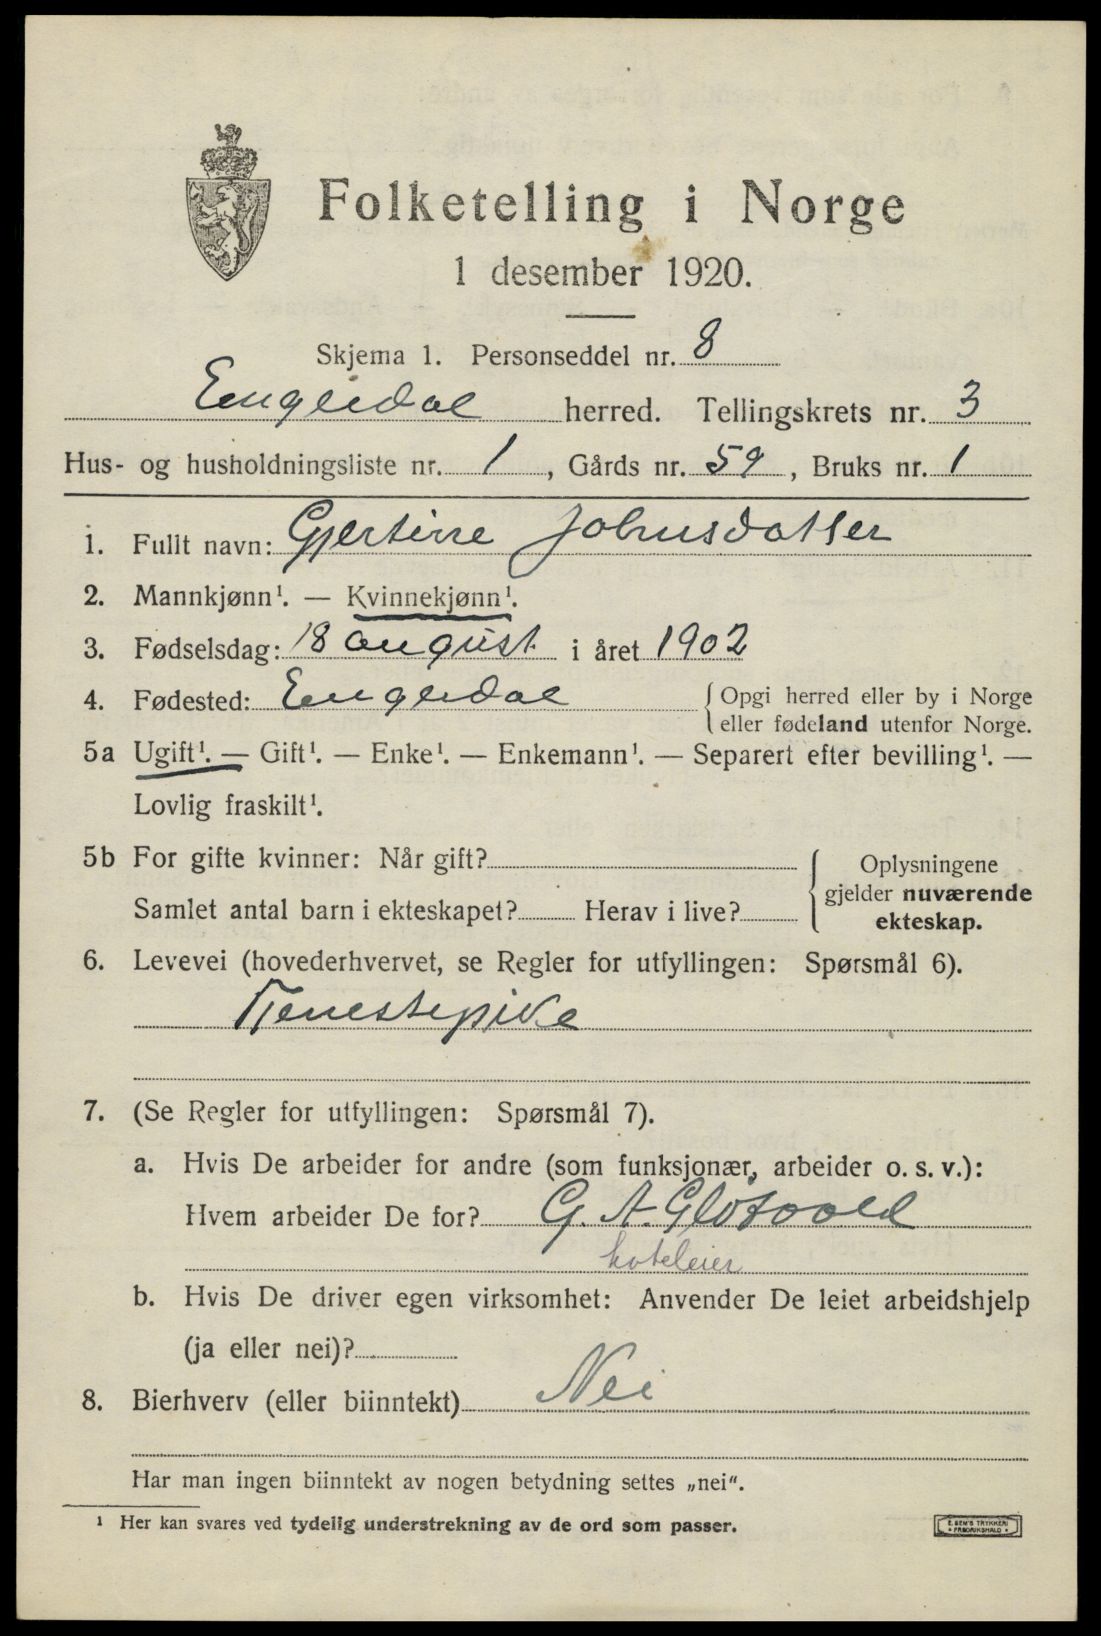 Folketelling i Norge
1 desember 1920.
Skjema 1. Personseddel nr. 8
Engerdal herred. Tellingskrets nr. 3
Hus- og husholdningsliste nr. 1, Gårds nr. 59, Bruks nr. 1
1. Fullt navn: Gjertine Johnsdatter
2. Mannkjønn¹. — Kvinnekjønn¹.
3. Fødselsdag: 18 august i året 1902
4. Fødested: Engerdal { Opgi herred eller by i Norge
eller fødeland utenfor Norge.
5a Ugift¹. — Gift¹. — Enke¹. — Enkemann¹. — Separert efter bevilling¹. —
Lovlig fraskilt¹.
5b For gifte kvinner: Når gift?
Samlet antal barn i ekteskapet? Herav i live?
{ Oplysningene
gjelder nuværende
ekteskap.
6. Levevei (hovederhvervet, se Regler for utfyllingen: Spørsmål 6).
Tjenestepike
7. (Se Regler for utfyllingen: Spørsmål 7).
a. Hvis De arbeider for andre (som funksjonær, arbeider o. s. v.):
Hvem arbeider De for? G. A. Gløtvold
hoteleier
b. Hvis De driver egen virksomhet: Anvender De leiet arbeidshjelp
(ja eller nei)?
8. Bierhverv (eller biinntekt) Nei
Har man ingen biinntekt av nogen betydning settes „nei“.
¹ Her kan svares ved tydelig understrekning av de ord som passer.
E. SEM'S TRYKKERI
• FREDRIKSHALD •